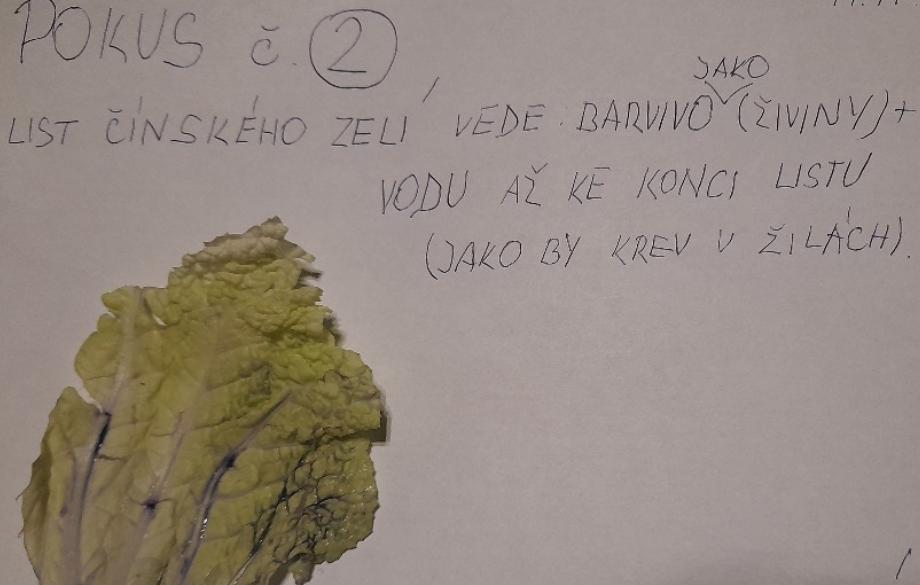 POKUS č. 2
JAKO
LIST ČÍNSKÉHO ZELÍ VEDE BARVIVO (ŽIVINY) +
VODU AŽ KE KONCI LISTU
(JAKO BY KREV V ŽILÁCH).